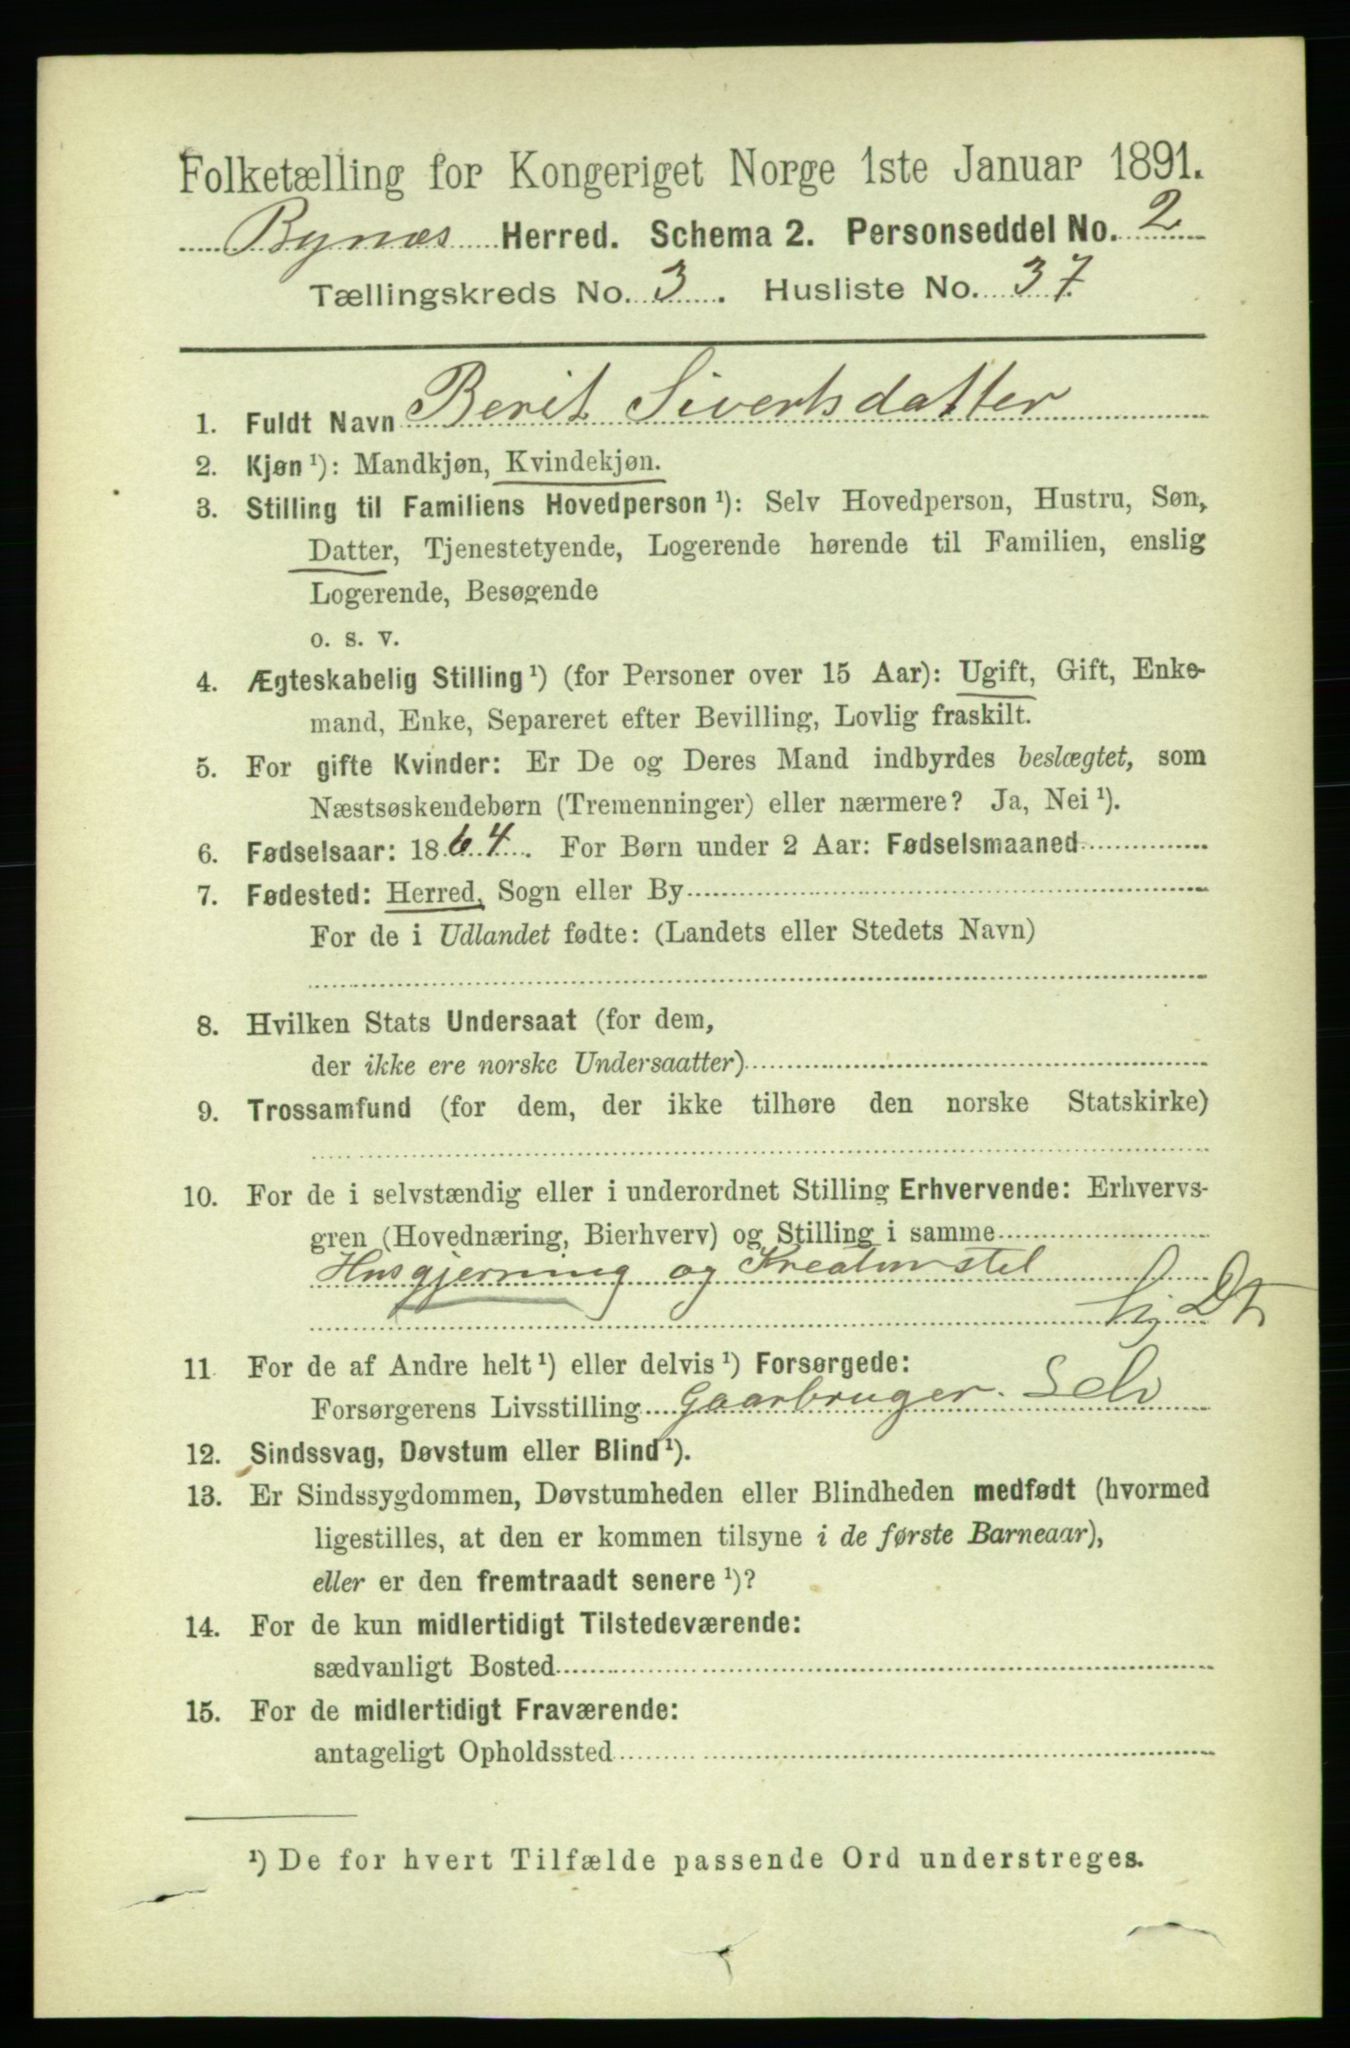 Folketælling for Kongeriget Norge 1ste Januar 1891.
Bynæs Herred. Schema 2. Personseddel No. 2
Tællingskreds No. 3. Husliste No. 37
1. Fuldt Navn Berit Sivertsdatter
2. Kjøn ¹): Mandkjøn, Kvindekjøn.
3. Stilling til Familiens Hovedperson ¹): Selv Hovedperson, Hustru, Søn,
Datter, Tjenestetyende, Logerende hørende til Familien, enslig
Logerende, Besøgende
o. s. v.
4. Ægteskabelig Stilling ¹) (for Personer over 15 Aar): Ugift, Gift, Enke-
mand, Enke, Separeret efter Bevilling, Lovlig fraskilt.
5. For gifte Kvinder: Er De og Deres Mand indbyrdes beslægtet, som
Næstsøskendebørn (Tremenninger) eller nærmere? Ja, Nei ¹).
6. Fødselsaar: 1864. For Børn under 2 Aar: Fødselsmaaned
7. Fødested: Herred, Sogn eller By
For de i Udlandet fødte: (Landets eller Stedets Navn)
8. Hvilken Stats Undersaat (for dem,
der ikke ere norske Undersaatter)
9. Trossamfund (for dem, der ikke tilhøre den norske Statskirke)
10. For de i selvstændig eller i underordnet Stilling Erhvervende: Erhvervs-
gren (Hovednæring, Bierhverv) og Stilling i samme
Husgjerning og Kreaturstel
11 For de af Andre helt ¹) eller delvis ¹) Forsørgede:
Forsørgerens Livsstilling Gaarbruger. Selv
12. Sindssvag, Døvstum eller Blind ¹).
13. Er Sindssygdommen, Døvstumheden eller Blindheden medfødt (hvormed
ligestilles, at den er kommen tilsyne i de første Barneaar),
eller er den fremtraadt senere ¹)?
14. For de kun midlertidigt Tilstedeværende:
sædvanligt Bosted
15. For de midlertidigt Fraværende:
antageligt Opholdssted
¹) De for hvert Tilfælde passende Ord understreges.